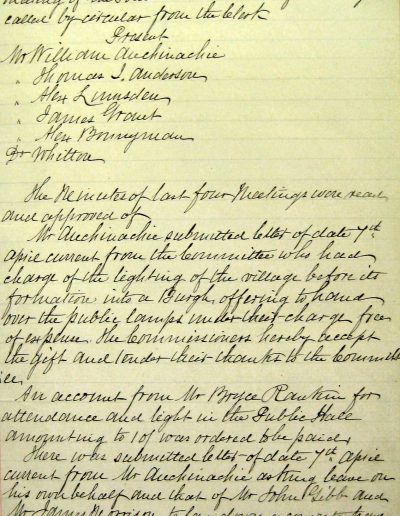 called by circular from the Clerk
Present
Mr William Auchinachie
" Thomas J. Anderson
" Alex Lumsden
" James Grant
" Alex Bonnyman
Dr Whitton
The Minutes of last four Meetings were read
and approved of
Mr Auchinachie submitted letter of date 7th
April current from the Committee who had
charge of the lighting of the village before its
formation into a Burgh, offering to hand
over the public lamps under their charge free
of expense. The Commissioners hereby accept
the gift and tender their thanks to the Committ
ee.
An account from Mr Bryce Rankin for
attendance and light in the Public Hall
amounting to 10/ was ordered to be paid.
There was submitted letter of date 7th April
current from Mr Auchinachie asking leave on
his own behalf and that of Mr John Gibb and
Mr James Morrison to